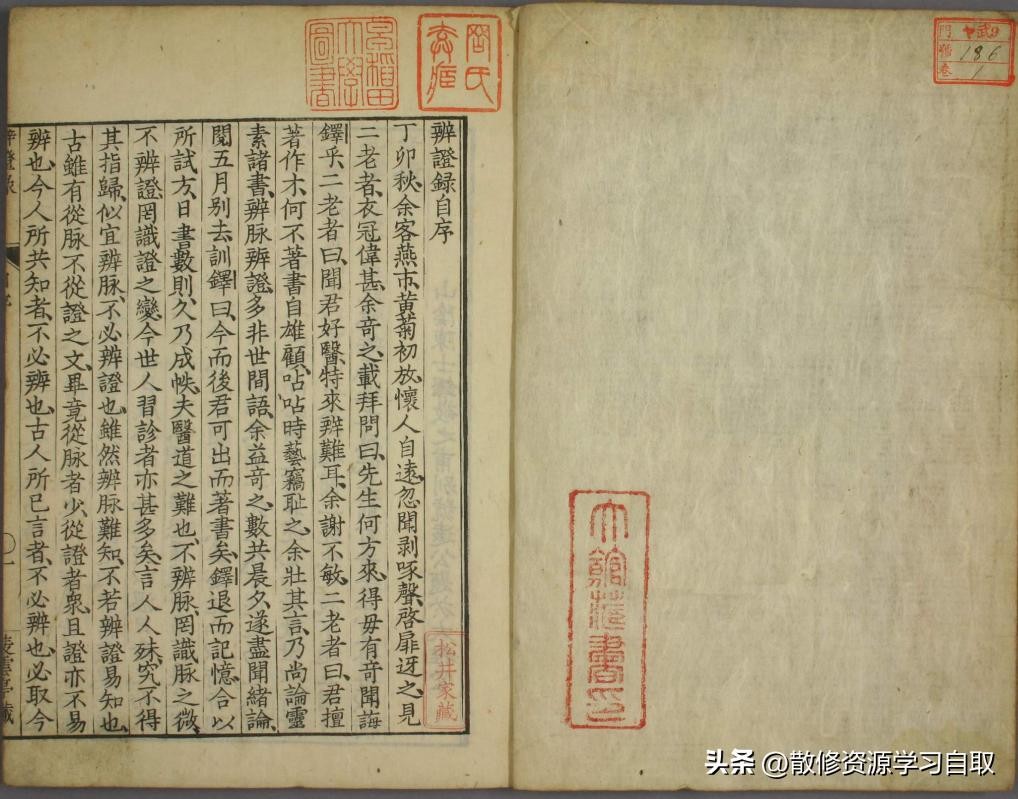 辨證録自序
丁卯秋余客燕市黃菊初放懷人自遠忽聞剥啄聲啓扉迓之見
二老者衣冠偉甚余奇之載拜問曰先生何方來得毋有奇聞誨
鐸乎二老者曰聞君好醫特來辨難耳余謝不敏二老者曰君擅
著作才何不著書自雄顧呫呫時藝竊耻之余壯其言乃尚論靈
素諸書辨脉辨證多非世間語余益竒之數共晨夕遂盡聞緒論
閱五月别去訓鐸曰今而後君可出而著書矣鐸退而記憶合以
所試方日書數則久乃成帙夫醫道之難也不辨脉罔識脉之微
不辨證罔識證之變今世人習診者亦甚多矣言人人殊究不得
其指歸似宜辨脉不必辨證也雖然辨脉難知不若辨證易知也
古雖有從脉不從證之文畢竟從脉者少從證者衆且證亦不易
辨也今人所共知者不必辨也古人所已言者不必辨也必取今
松井家藏
早稲田大學圖書
門 ヤ武9
號 186
卷 1
头条 @散修资源学习自取